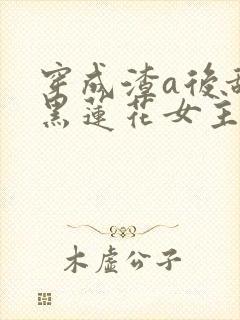 穿成渣a後
黑蓮花女主
木虛公子